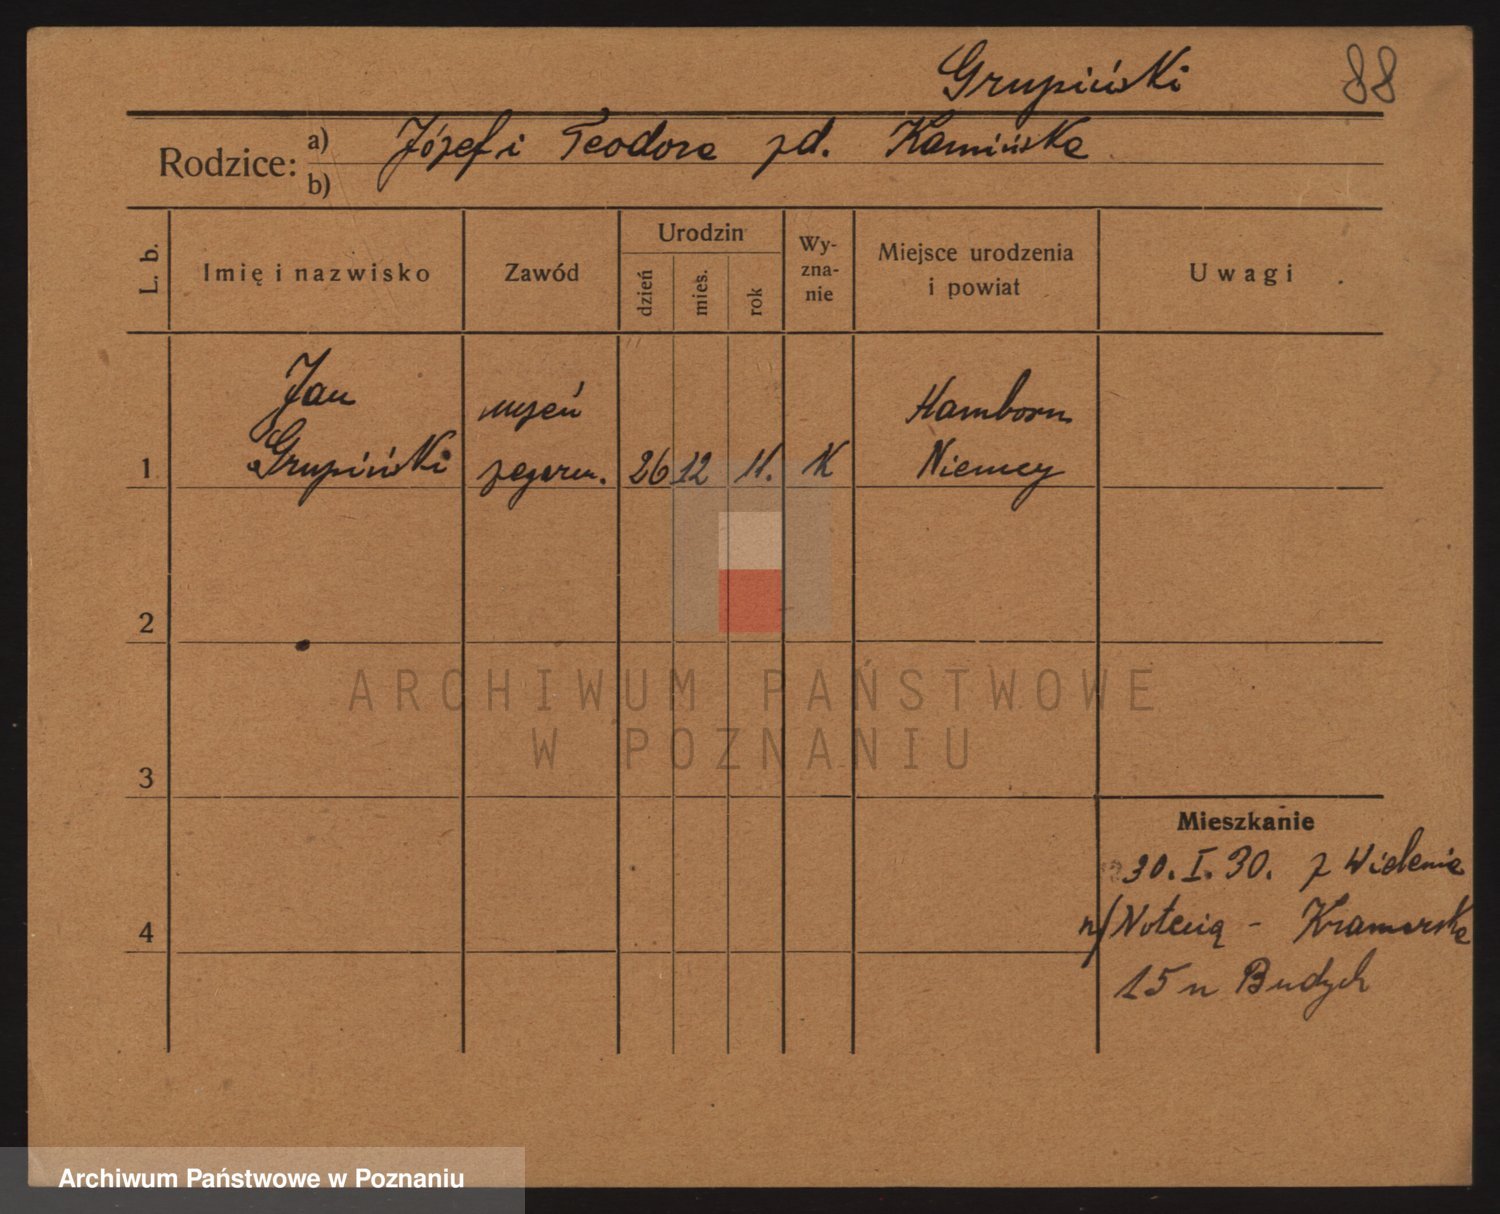 Grupiński 88
Rodzice: a) Józef i Teodora zd. Kamińska
b)
L. b. Imię i nazwisko Zawód Urodzin dzień mies. rok Wyznanie Miejsce urodzenia i powiat Uwagi
Jan uczeń Hamborn
1 Grupiński zegarm. 26 12 11. K Niemcy
2
ARCHIWUM PAŃSTWOWE
W POZNANIU
3
Mieszkanie
30. I. 30. z Wielenia
4 n/Notecią - Kramarska
15 u Budych
Archiwum Państwowe w Poznaniu